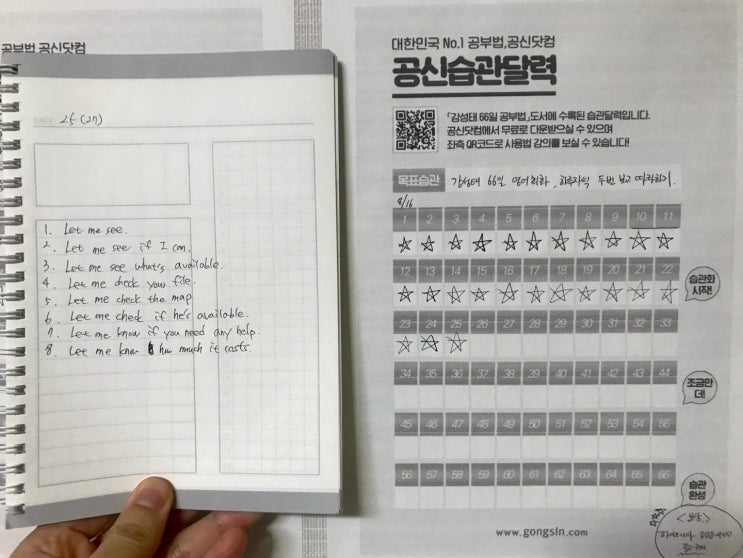 공부법 공신닷컴
DATE 25 (2n)
1. Let me see.
2. Let me see if I can.
3. Let me see what's available.
4. Let me check your file.
5. Let me check the map.
6. Let me check if he's available.
7. Let me know if you need any help.
8. Let me know how much it costs.
대한민국 No.1 공부법, 공신닷컴
공신습관달력
「강성태 66일 공부법」도서에 수록된 습관달력입니다.
공신닷컴에서 무료로 다운받으실 수 있으며
좌측 QR코드로 사용법 강의를 보실 수 있습니다!
목표습관 강성태 66일 영어회화, 하루지식 두번 보고 따라하기.
8/16
1 2 3 4 5 6 7 8 9 10 11
12 13 14 15 16 17 18 19 20 21 22
습관화
시작!
23 24 25 26 27 28 29 30 31 32 33
34 35 36 37 38 39 40 41 42 43 44
조금만
더!
45 46 47 48 49 50 51 52 53 54 55
56 57 58 59 60 61 62 63 64 65 66
습관
완성
<보상>
www.gongsin.com